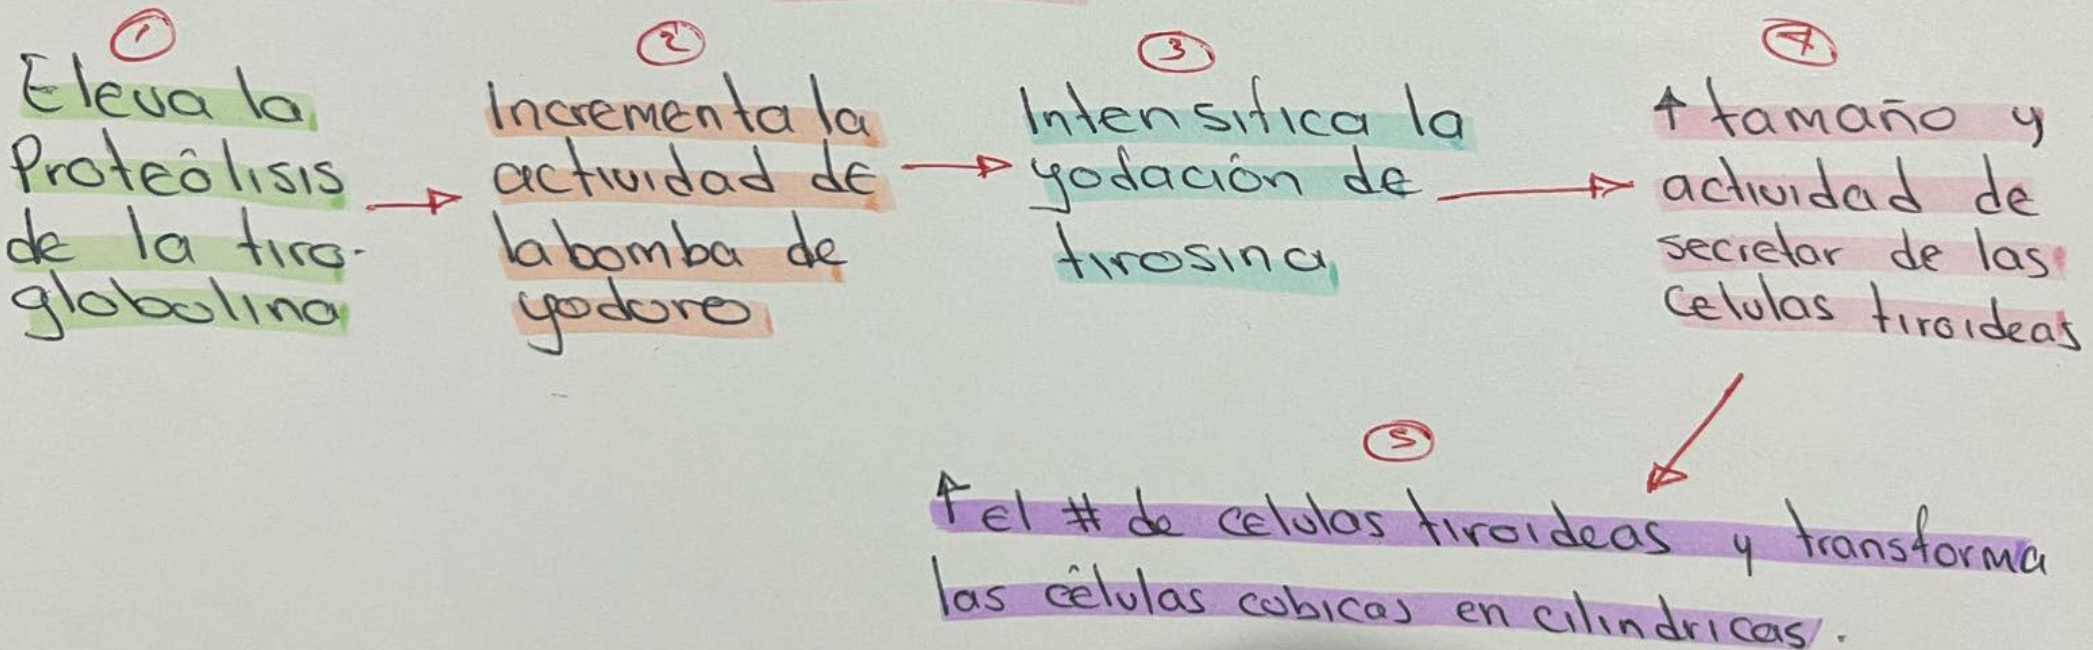 ①
Eleva la
Proteólisis
de la tiro-
globulina
②
Incrementa la
actividad de
la bomba de
yoduro
③
Intensifica la
yodación de
tirosina
④
↑ tamaño y
actividad de
secretar de las
celulas tiroideas
⑤
↑ el # de celulas tiroideas y transforma
las células cubicas en cilindricas.